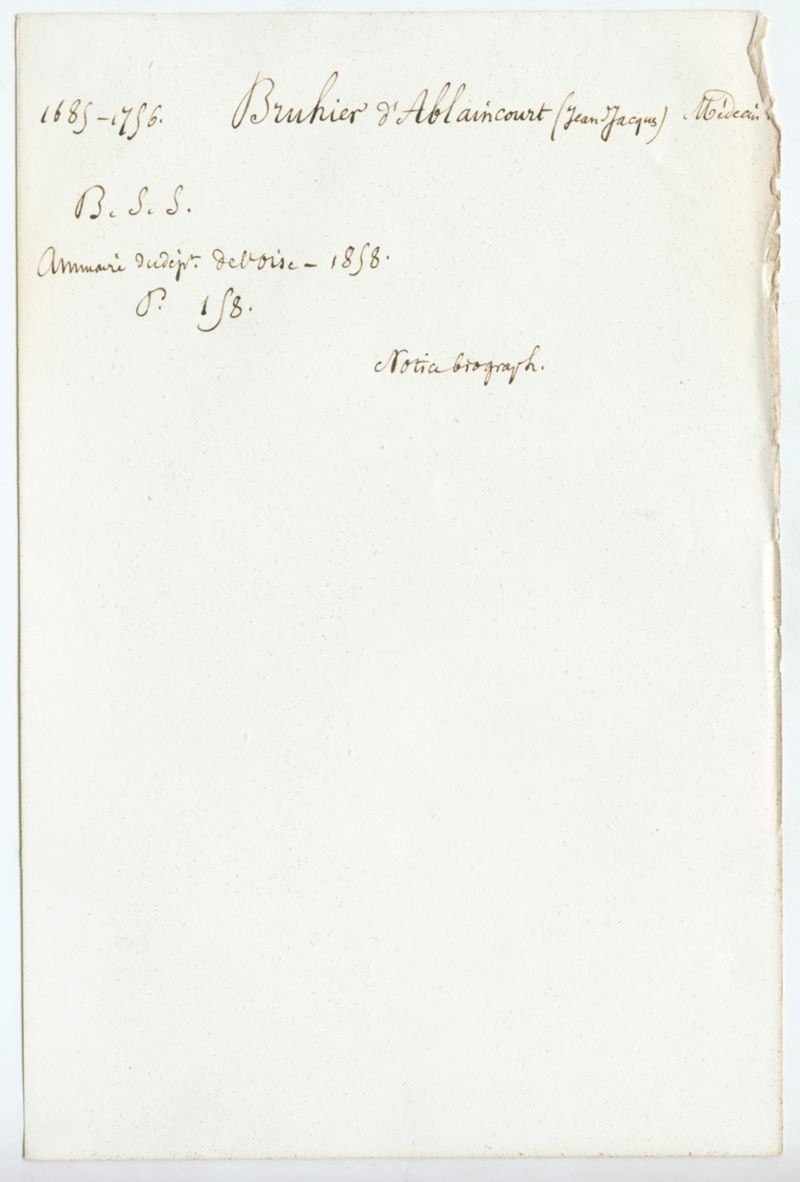 1685-1756. Bruhier d'Ablaincourt (Jean Jacques) Médecin
B. S. S.
Annuaire du dépt. de l'oise - 1858.
P. 158.
Notice biograph.